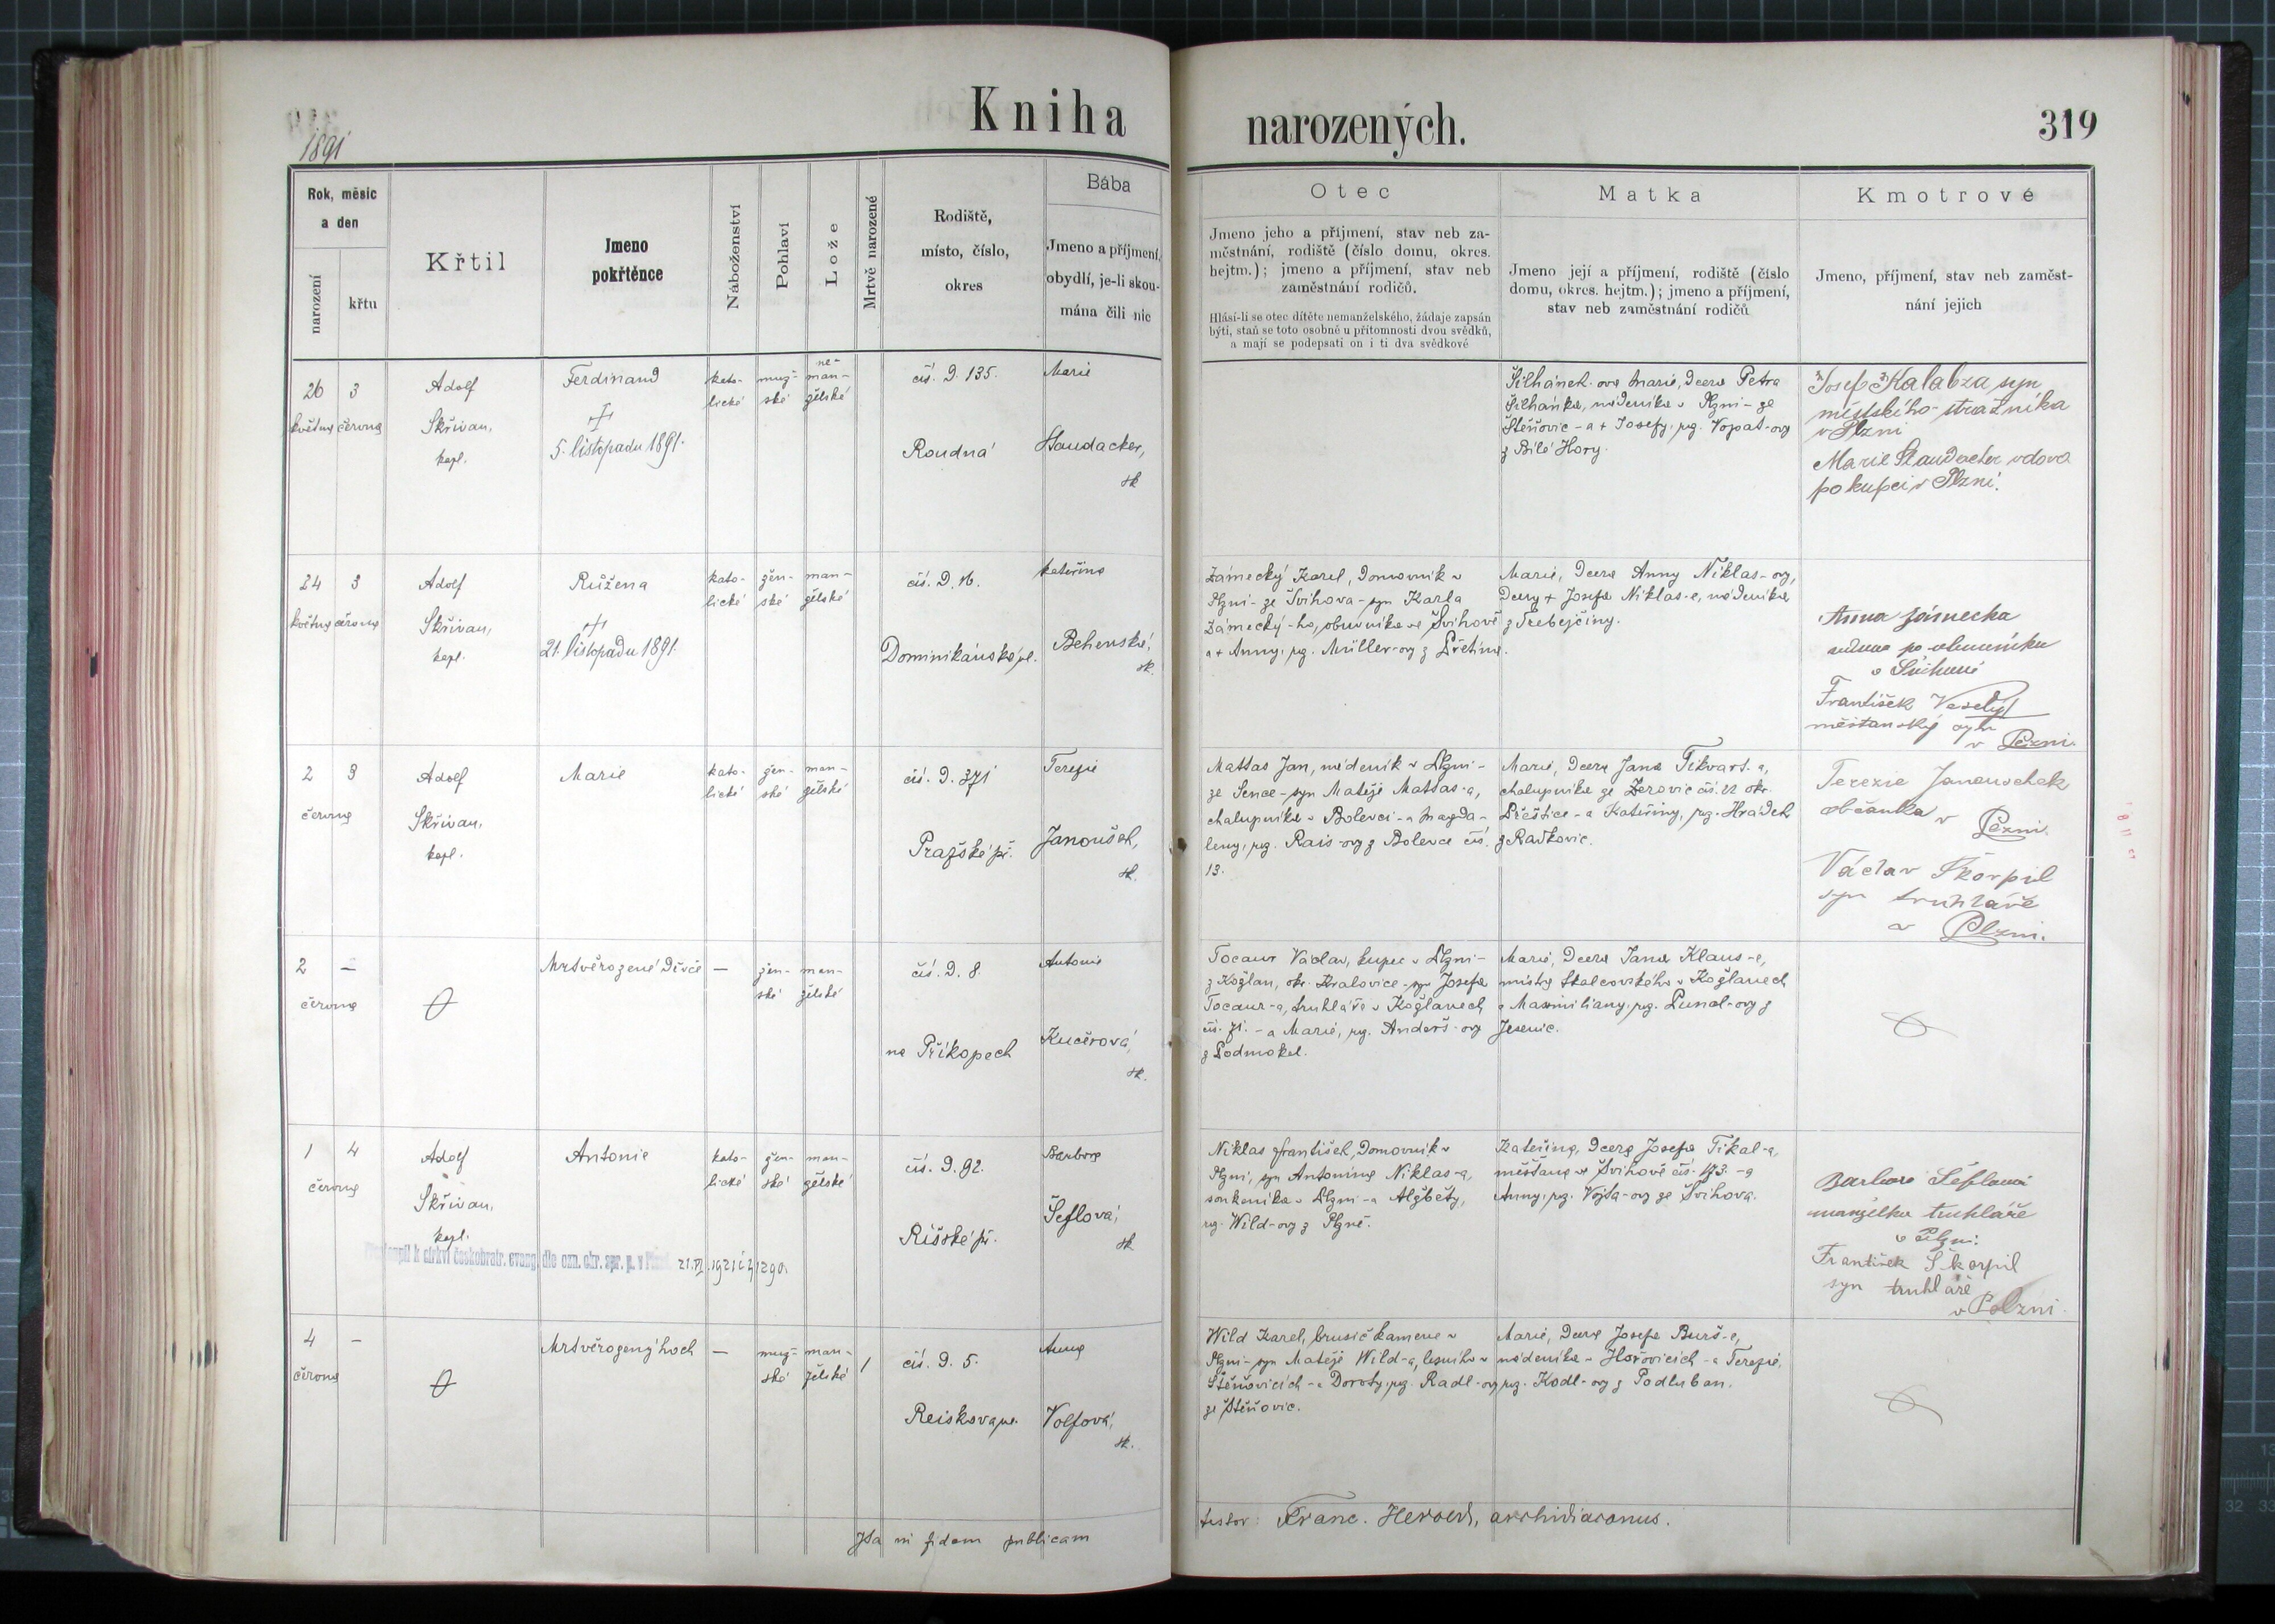 Kniha
narozených.
319
1891
Rok, měsíc
a den
narození
křtu
Křtil
Jmeno
pokřtěnce
Náboženství
Pohlaví
Lože
Mrtvě narozené
Rodiště,
místo, číslo,
okres
Bába
Jmeno a příjmení,
obydlí, je-li skou-
mána čili nic
Otec
Jmeno jeho a příjmení, stav neb za-
městnání, rodiště (číslo domu, okres.
hejtm.); jmeno a příjmení, stav neb
zaměstnání rodičů.
Hlásí-li se otec dítěte nemanželského, žádaje zapsán
býti, staň se toto osobně u přítomnosti dvou svědků,
a mají se podepsati on i ti dva svědkové
Matka
Jmeno její a příjmení, rodiště (číslo
domu, okres. hejtm.); jmeno a příjmení,
stav neb zaměstnání rodičů
Kmotrové
Jmeno, příjmení, stav neb zaměst-
nání jejich
26 3
května června
Adolf
Skřivan,
kapl.
Ferdinand
5. listopadu 1891.
kato-
lické
muž-
ské
ne-
man-
želské
čís. d. 135.
Roudná
Marie
Staudacher,
sk
Šilhánek-ova Marie, dcera Petra
Šilhánka, nádeníka v Plzni - ze
Štěňovic - a + Josefy, roz. Vojpat-ovy
z Bílé Hory.
Josef Kalabza syn
městského strážníka
v Plzni
Marie Staudacher vdova
po kupci v Plzni.
24 3
května června
Adolf
Skřivan,
kapl.
Růžena
21. listopadu 1891.
kato-
lické
žen-
ské
man-
želské
čís. d. 16.
Dominikánská ul.
Kateřina
Behenská,
sk.
Zámecký Karel, domovník v
Plzni - ze Švihova - syn Karla
Zámecký-ho, obuvníka ve Švihově
a + Anny, roz. Müller-ovy z Lřetína.
Marie, dcera Anny Niklas-ovy,
dcery + Josefa Niklas-e, nádeníka
z Třebejčiny.
Anna Zámecka
vdova po obuvníku
v Švihově
František Veselý
městanský syn
v Plzni.
2 3
června
Adolf
Skřivan,
kapl.
Marie
kato-
lické
žen-
ské
man-
želské
čís. d. 371
Pražské př.
Terezie
Janoušek,
sk.
Mattas Jan, nádeník v Plzni -
ze Sence - syn Matěje Mattas-a,
chalupníka v Bolevci - a Magda-
leny, roz. Rais-ovy z Bolevce čís.
13.
Marie, dcera Jana Tikvart-a,
chalupníka ze Žerovic čís. 12 okr.
Přeštice - a Kateřiny, roz. Hrádek
z Radkovic.
Terezie Janouschek
občanka v Plzni.
Václav Škorpil
syn truhláře
v Plzni.
2 -
června
Mrtvěrozené děvče
-
žen-
ské
man-
želské
čís. d. 8.
na Příkopech
Antonie
Kučerová,
sk.
Tocaur Václav, kupec v Plzni -
z Kožlan, okr. Kralovice - syn Josefa
Tocaur-a, truhláře v Kožlanech
čís. 71. - a Marie, roz. Anderš-ovy
z Podmokel.
Marie, dcera Jana Klaus-e,
mistra tkalcovského v Kožlanech
a Maxmiliany, roz. Punol-ovy z
Jesenic.
1 4
června
Adolf
Skřivan,
kapl.
Antonie
kato-
lické
žen-
ské
man-
želské
čís. d. 92.
Říšské př.
Barbora
Šeflová,
sk
k církvi českobratr. evang. dle ozn. okr. spr. p. v 21.VI.1921 č.j. 1290.
Niklas František, domovník v
Plzni, syn Antonína Niklas-a,
soukeníka v Plzni - a Alžběty,
roz. Wild-ovy z Plzně.
Kateřina, dcera Josefa Tikal-a,
měšťana ve Švihově čís. 173. - a
Anny, roz. Vojta-ovy ze Švihova.
Barbora Šeflová
manželka truhláře
v Plzni.
František Škorpil
syn truhláře
v Plzni.
4 -
června
Mrtvěrozený hoch
-
muž-
ské
man-
želské
1
čís. d. 5.
Reiskova ul.
Anna
Volfová,
sk.
Wild Karel, brusič kamene v
Plzni - syn Matěje Wild-a, lesního v
Štěňovicích - a Doroty, roz. Radl-ovy
ze Štěňovic.
Marie, dcera Josefa Burš-e,
nádeníka v Hořovicích - a Terezie,
roz. Kodl-ovy z Podluban.
Ita in fidem publicam
testor: Franc. Herold, archidiaconus.